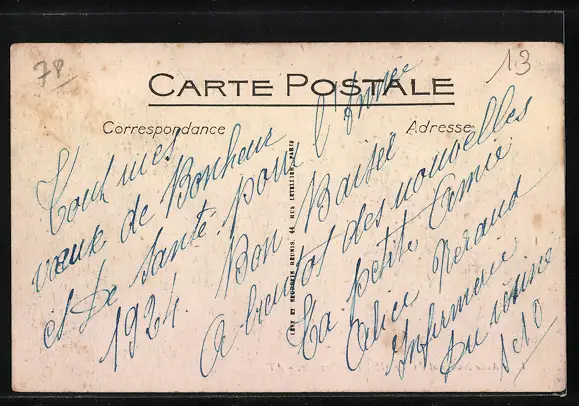 78
13
CARTE POSTALE
Correspondance
Adresse
Tout mes
vœux de Bonheur
et de santé pour l'Année
1924. Bon Baisée
A bientot des nouvelles
Ta petite Amie
Alice Neraud
Infirmerie
Du
LEVY ET NEURDEIN REUNIS, 44, RUE LETELLIER, PARIS